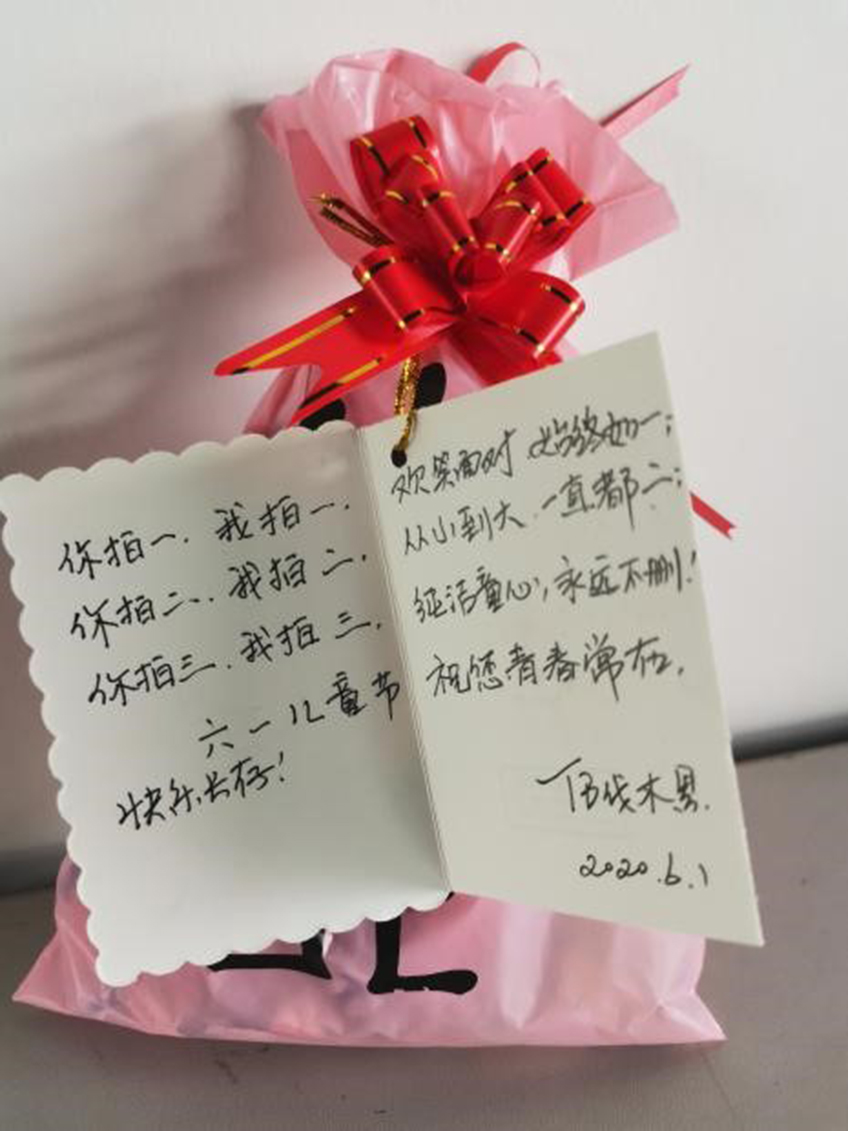 你拍一.我拍一.
你拍二.我拍二.
你拍三.我拍三.
六一儿童节
快乐长存!
欢笑面对 始终如一;
从小到大 一直都二;
纯洁童心,永远不删!
祝您青春常在.
伐木累.
2020.6.1